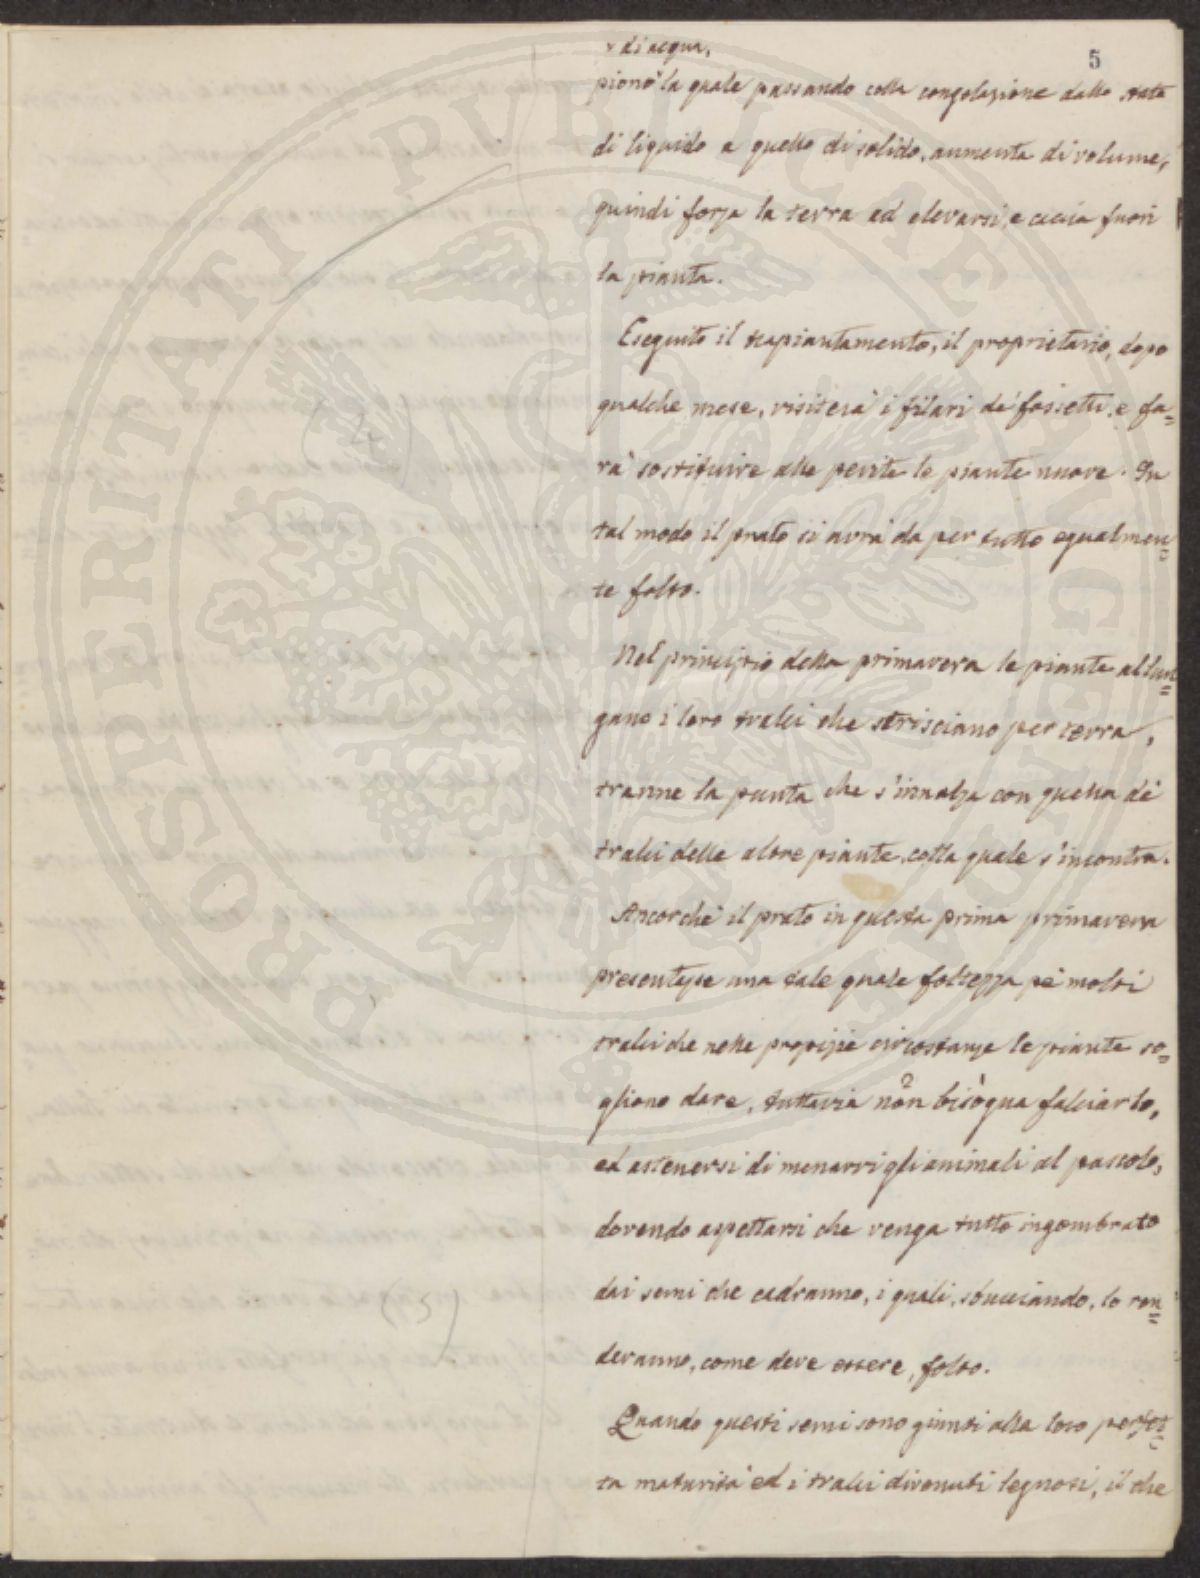 5
× di acqua,
pione la quale passando colla congelazione dallo stato
di liquido a quello di solido, aumenta di volume,
quindi forza la terra ed elevarsi, e caccia fuori
la pianta.
Eseguito il trapiantamento, il proprietario, dopo
qualche mese, visiterà i filari de' fossetti, e fa=
rà sostituire alle perite le piante nuove. In
tal modo il prato si avrà da per tutto egualmen=
te folto.
Nel principio della primavera le piante allun=
gano i loro tralci che strisciano per terra,
tranne la punta che s'innalza con quella de'
tralci delle altre piante, colla quale s'incontra.
Ancorchè il prato in questa prima primavera
presentasse una tale quale foltezza pe' molti
tralci che nelle propizie circostanze le piante so=
gliono dare, tuttavia non bisogna falciarlo,
ed astenersi di menarvi gli animali al pascolo,
dovendo aspettarsi che venga tutto ingombrato
dai semi che cadranno, i quali, sbucciando, lo ren=
deranno, come deve essere, folto.
Quando questi semi sono giunti alla loro perfet=
ta maturità ed i tralci divenuti legnosi, il che
(4)
(5)
PROSPERITATI PUBLICAE AUGENDAE